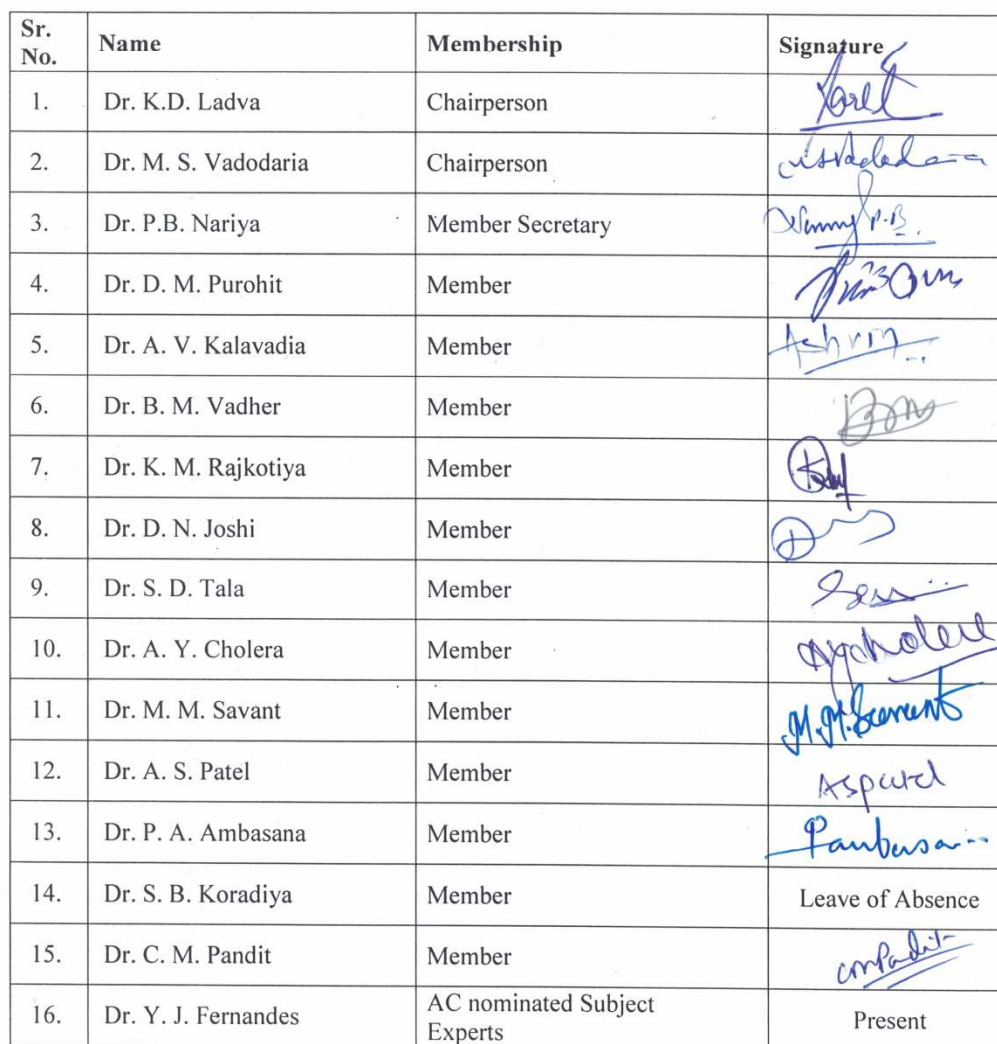 Sr. No. Name Membership Signature
1. Dr. K.D. Ladva Chairperson
2. Dr. M. S. Vadodaria Chairperson
3. Dr. P.B. Nariya Member Secretary P.B.
4. Dr. D. M. Purohit Member
5. Dr. A. V. Kalavadia Member Ashvin
6. Dr. B. M. Vadher Member
7. Dr. K. M. Rajkotiya Member
8. Dr. D. N. Joshi Member
9. Dr. S. D. Tala Member
10. Dr. A. Y. Cholera Member
11. Dr. M. M. Savant Member M.M.Savant
12. Dr. A. S. Patel Member ASPatel
13. Dr. P. A. Ambasana Member
14. Dr. S. B. Koradiya Member Leave of Absence
15. Dr. C. M. Pandit Member cmPandit
16. Dr. Y. J. Fernandes AC nominated Subject Experts Present